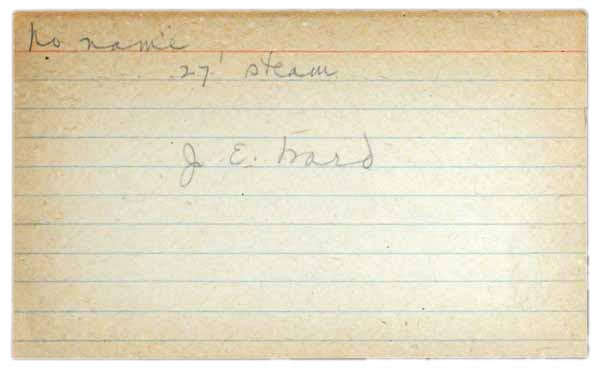 no name
27' steam
J. E. Ward